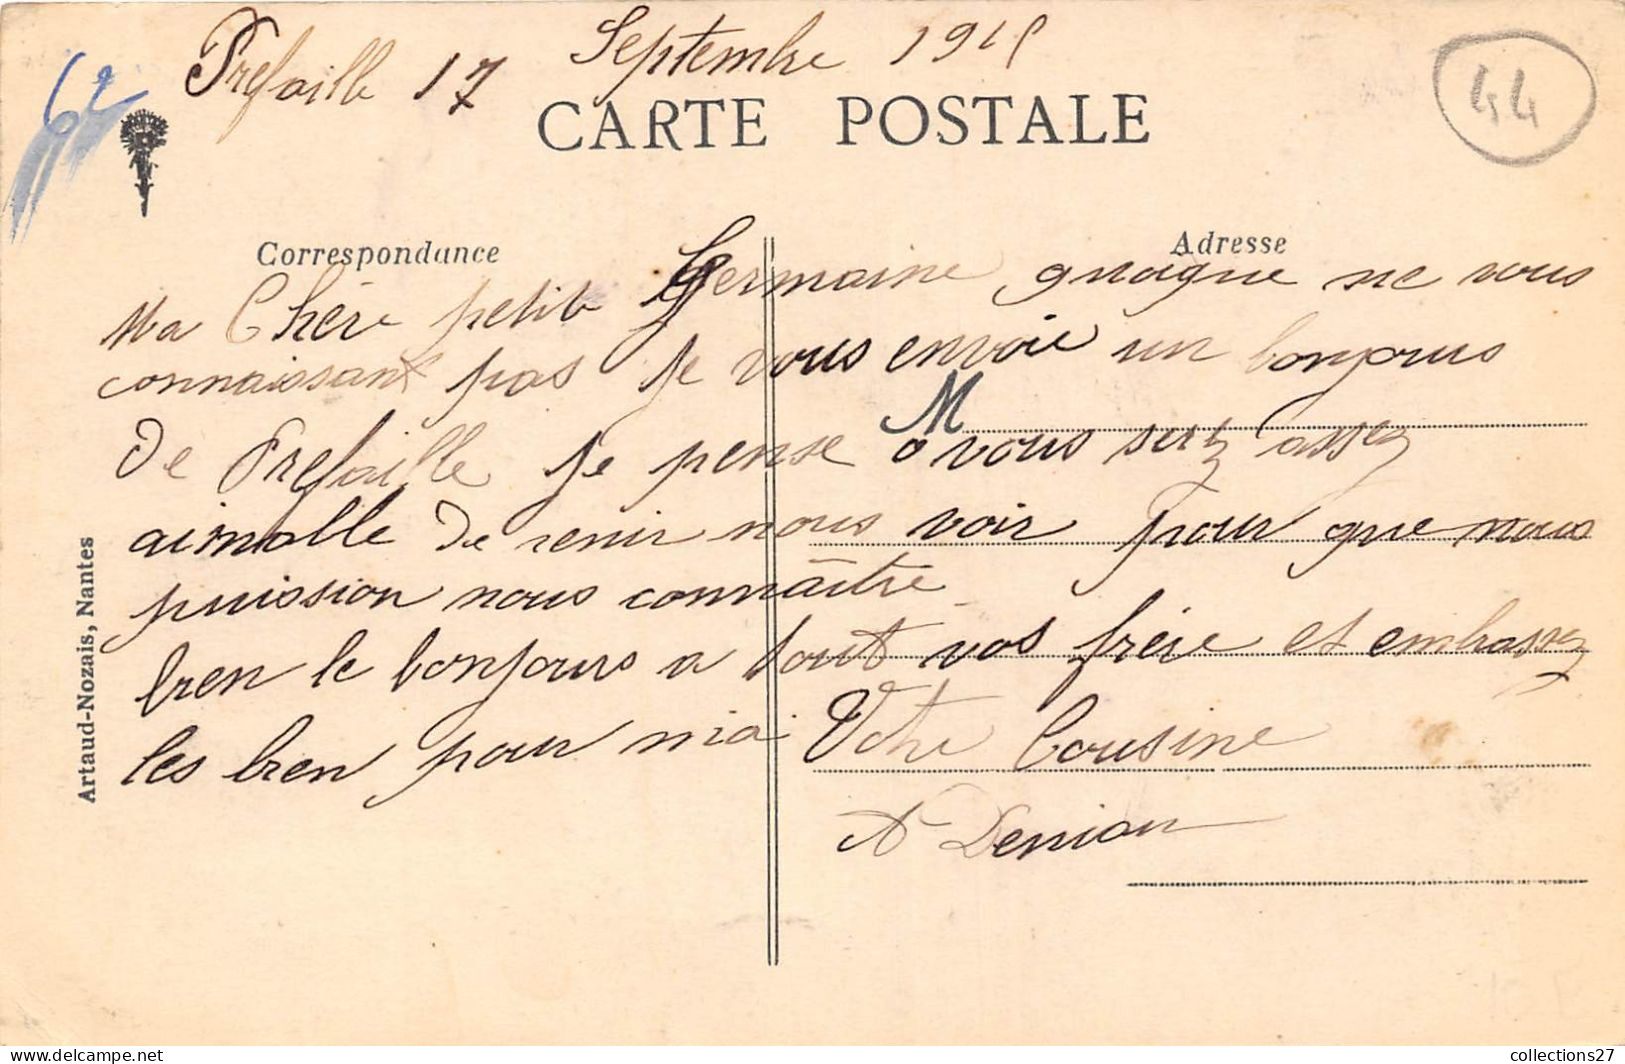 Prefaille 17 Septembre 191
62
CARTE POSTALE
44
Correspondance
Adresse
Ma Chère petite Germaine quoique ne vous
connaissant pas je vous envoie un bonjours
M
De Prefaille je pense a vous serez assez
aimable De venir nous voir pour que nous
puission nous connaître
bien le bonjours a tout vos frère et embassez
les bien pour moi Votre Cousine
A Deniau
Artaud-Nozais, Nantes
collections27